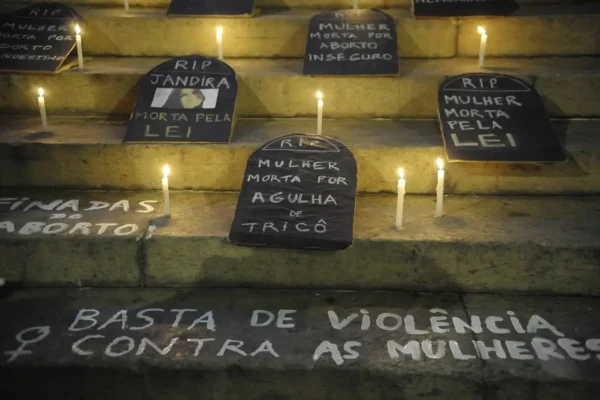 RIP
MULHER
MORTA POR
ABORTO
CLANDESTINO
MULHER
MORTA POR
ABORTO
INSEGURO
RIP
JANDIRA
MORTA PELA
LEI
RIP
MULHER
MORTA
PELA
LEI
RIP
MULHER
MORTA POR
AGULHA
DE
TRICÔ
FINADAS
DO
ABORTO!
BASTA DE VIOLÊNCIA
CONTRA AS MULHERES